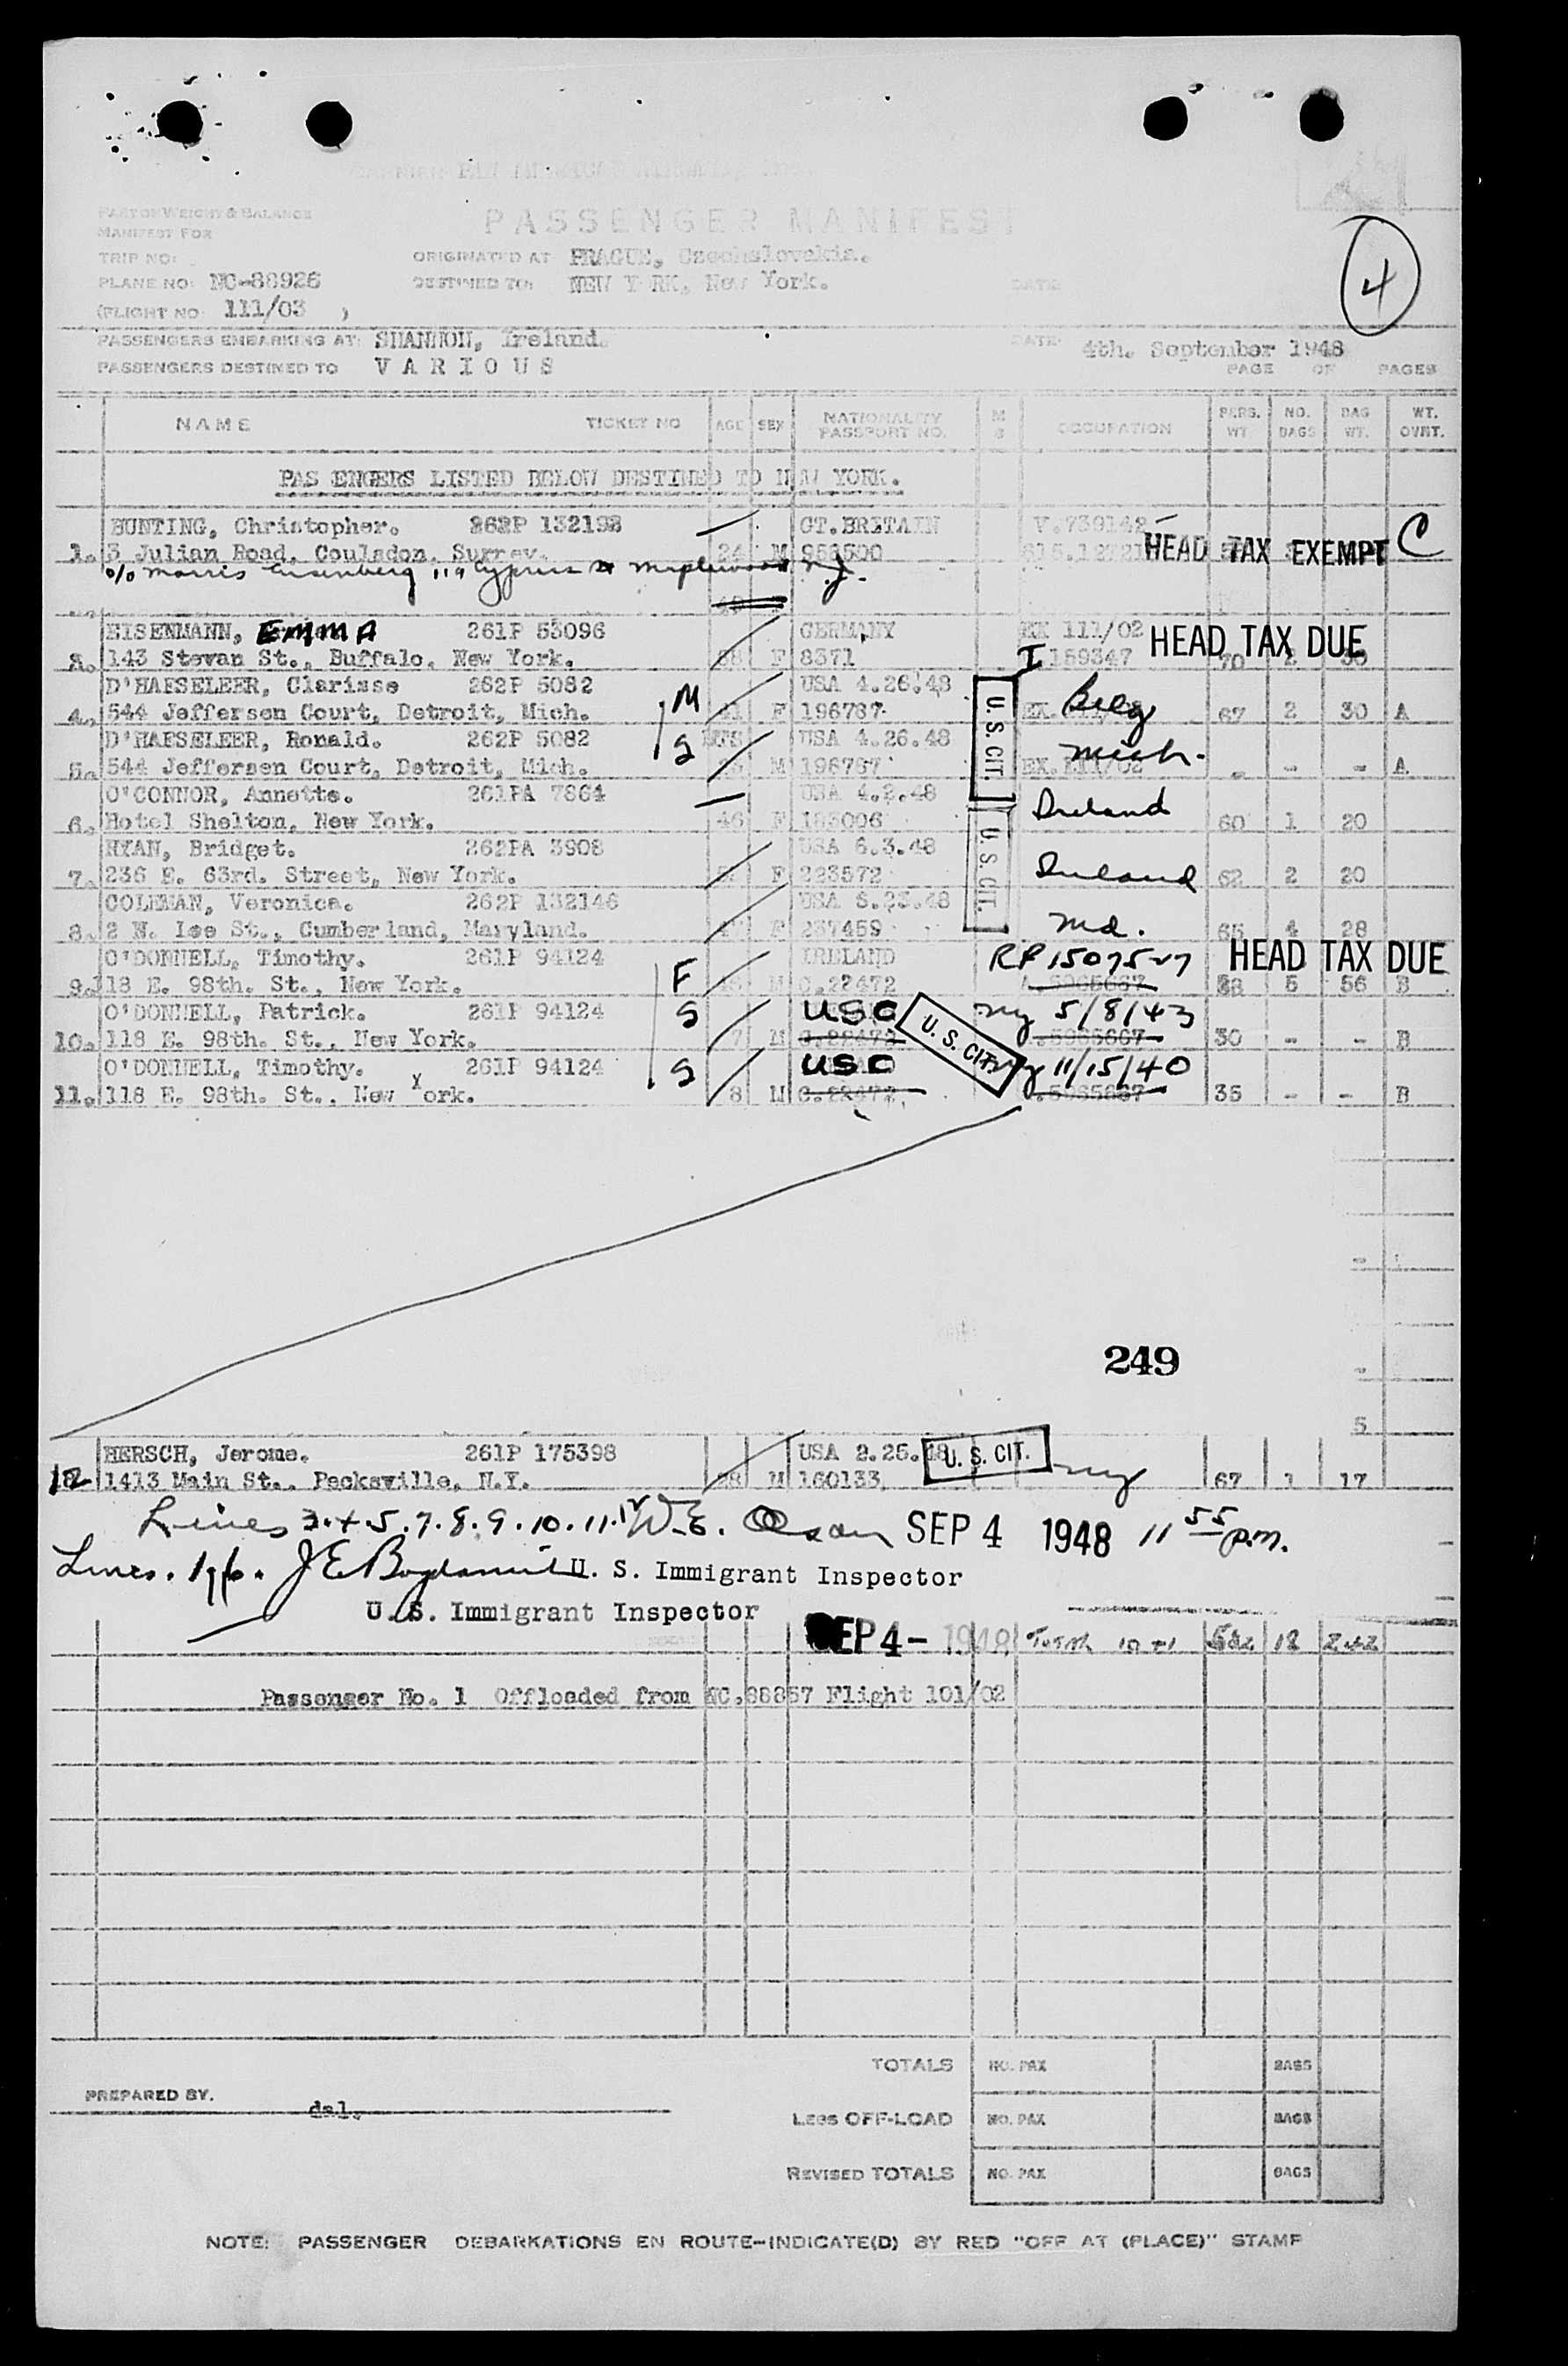 PASSENGER MANIFEST
PART OF WEIGHT & BALANCE
MANIFEST FOR
TRIP NO:
ORIGINATED AT PRAGUE, Czechslovakia.
PLANE NO: NC-88926
DESTINED TO: NEW Y RK, New York.
DATE
4
(FLIGHT NO 111/03 )
PASSENGERS EMBARKING AT: SHANNON, Ireland.
DATE 4th. September 1948
PASSENGERS DESTINED TO VARIOUS
PAGE OF PAGES
NAME TICKET NO AGE SEX NATIONALITY PASSPORT NO. M S OCCUPATION PERS. WT NO. BAGS BAG WT. WT. OVRT.
PAS ENGERS LISTED BELOW DESTINED TO NEW YORK.
BUNTING, Christopher. 262P 132198 GT.BRITAIN V.739142
1. 3 Julian Road, Coulsdon, Surrey. 24 M 958500 HEAD TAX EXEMPT C
c/o Morris Eisenberg 114 Cyprus St Maplewood N.J.
EISENMANN, EMMA 261P 53096 GERMANY EX 111/02 HEAD TAX DUE
143 Stevan St., Buffalo, New York. F 8371 I 159347 70
D'HAESELEER, Clarisse 262P 5082 M USA 4.26.48 U. S. CIT. Belg
4. 544 Jefferson Court, Detroit, Mich. F 196787 67 2 30 A
D'HAESELEER, Ronald. 262P 5082 S USA 4.26.48 Mich.
5. 544 Jefferson Court, Detroit, Mich. M 196787 EX.111/02 - - - A
O'CONNOR, Annette. 261PA 7864 USA 4.2.48 Ireland
6. Hotel Shelton, New York. 46 F 183006 60 1 20
RYAN, Bridget. 262PA 3908 USA 6.3.48 U. S. CIT. Ireland
7. 236 E. 63rd. Street, New York. F 223572 62 2 20
COLEMAN, Veronica. 262P 132146 USA 6.23.48 Md.
8. 2 N. Lee St., Cumberland, Maryland. F 237459 65 4 28
O'DONNELL, Timothy. 261P 94124 F IRELAND RP 1507527 HEAD TAX DUE
9. 118 E. 98th. St., New York. M C.22472 A.5965667 88 5 56 B
O'DONNELL, Patrick. 261P 94124 S USC U. S. CIT. NY 5/8/43
10. 118 E. 98th. St., New York. 7 M C.22472 .5965667 30 - - B
O'DONNELL, Timothy. 261P 94124 S USC NY 11/15/40
11. 118 E. 98th. St., New York. 8 M C.22472. .5965667 35 - - B
249
5
HERSCH, Jerome. 261P 175398 USA 2.25.48 U. S. CIT. NY
12 1413 Main St., Pecksville, N.Y. 28 M 160133 67 1 17
Lines 3.4.5.7.8.9.10.11.12 W.E. Olson SEP 4 1948 11 55 p.m.
Lines. 1, 6. J E U. S. Immigrant Inspector
U. S. Immigrant Inspector
SEP 4 - 1948 Total 10+1 18 242
Passenger No. 1 Offloaded from NC.88857 Flight 101/02
TOTALS NO. PAX BAGS
PREPARED BY. dal.
Less OFF-LOAD NO. PAX BAGS
REVISED TOTALS NO. PAX BAGS
NOTE: PASSENGER DEBARKATIONS EN ROUTE-INDICATE(D) BY RED "OFF AT (PLACE)" STAMP